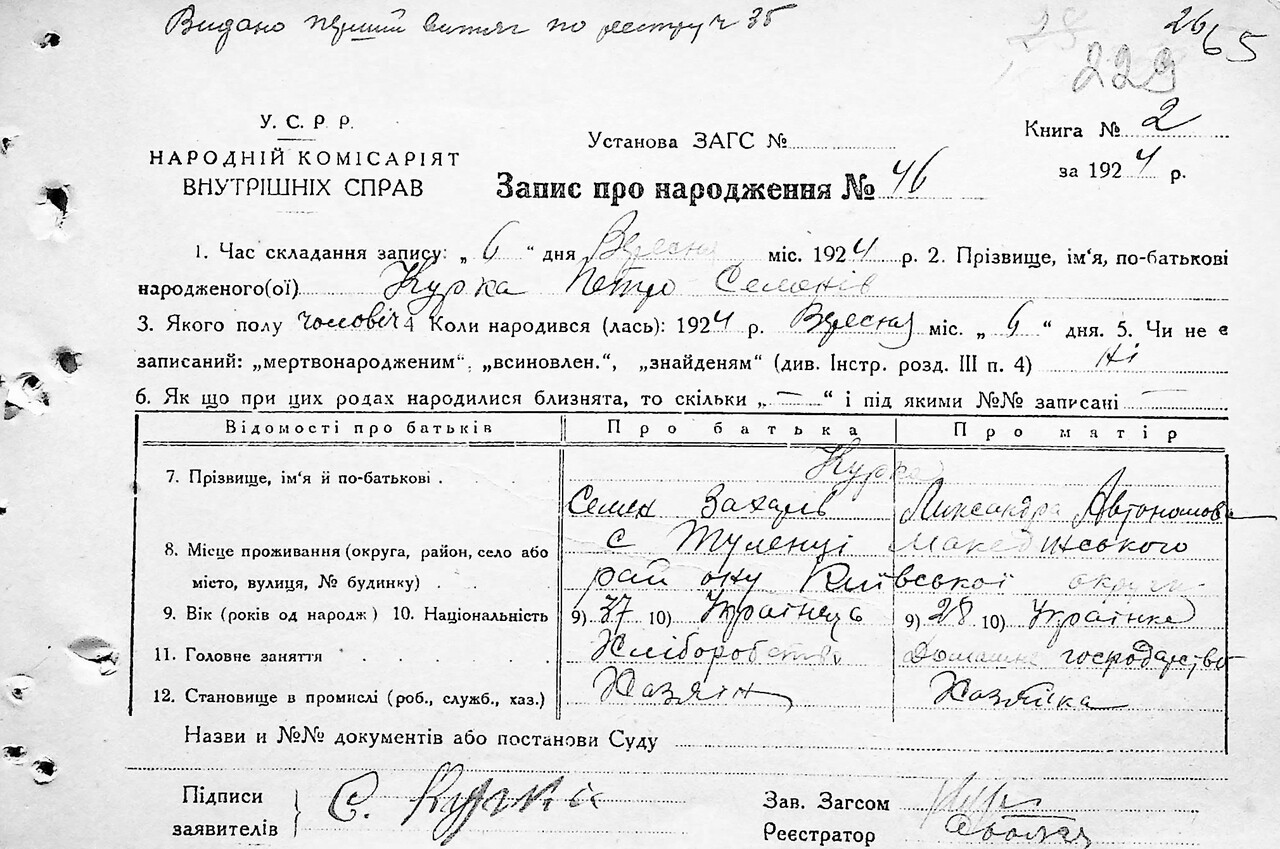 Видано перший витяг по реєстру ч 35
26
65
28
229
У. С. Р. Р.
НАРОДНІЙ КОМІСАРІЯТ
ВНУТРІШНІХ СПРАВ
Установа ЗАГС №
Книга № 2
за 1924 р.
Запис про народження № 46
1. Час складання запису: „ 6 “ дня Вересня міс. 1924 р. 2. Прізвище, ім‘я, по-батькові
народженого(ої) Курка Петро Семенів
3. Якого полу чоловіч 4 Коли народився (лась): 1924 р. Вересня міс. „ 6 “ дня. 5. Чи не є
записаний: „мертвонародженим“, „всиновлен.“, „знайденям“ (див. Інстр. розд. III п. 4) Ні
6. Як що при цих родах народилися близнята, то скільки „ — “ і під якими №№ записані —
Відомості про батьків Про батька Про матір
Курка
7. Прізвище, ім‘я й по-батькові .
Семен Захарів Александра Автономова
8. Місце проживання (округа, район, село або с Туленці Македонського
місто, вулиця, № будинку) . . району Київської округи
9. Вік (років од народж) 10. Національність 9) 37 10) Українець 9) 28 10) Українка
11. Головне заняття . . . . . Хліборобство Домашнє господарство
12. Становище в промислі (роб., служб., хаз.) Хазяїн Хазяйка
Назви и №№ документів або постанови Суду
Підписи
заявителів
С. Курка
Зав. Загсом
Реєстратор